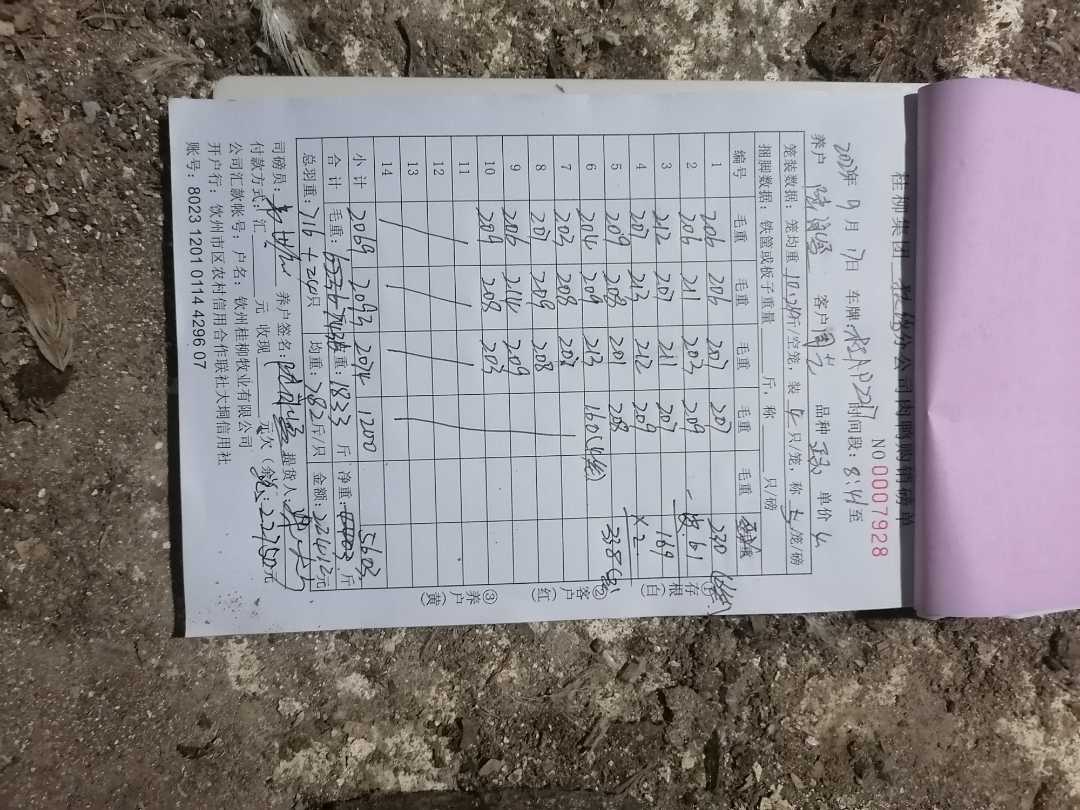 桂柳集团 分公司肉鸭购销磅单
NO 0007928
9月17日 车牌: 时间段:8:41至
养户 陈 客户 周 品种 单价 4
笼装数据:笼均重 10.2斤/空笼,装 4 只/笼,称 5 笼/磅
捆脚数据:铁筐或板子重量 斤,称 只/磅
编号 毛重 毛重 毛重 毛重 毛重
1 206 206 207 207 230
2 206 211 203 209 61
3 212 207 211 207 169
4 207 213 212 209 ×2
5 209 208 201 208 338
6 204 209 213 160
7 203 208 207
8 207 209 208
9 206 214 209
10 209 208 203
11
12
13
14
小计 2069 2093 2074 1200
合计 毛重: 7436 皮重:1833 斤 净重: 5603 斤
总羽重:716+ 只 均重:7.82斤/只 金额:22412元
司磅员: 养户签名: 提货人:
付款方式:汇 元 收现 元 欠(余 :22750元
公司汇款帐号:户名:钦州桂柳牧业有限公司
开户行:钦州市区农村信用合作联社大垌信用社
账号:8023 1201 0114 4296 07
①存根(白)
②客户(红)
③养户(黄)